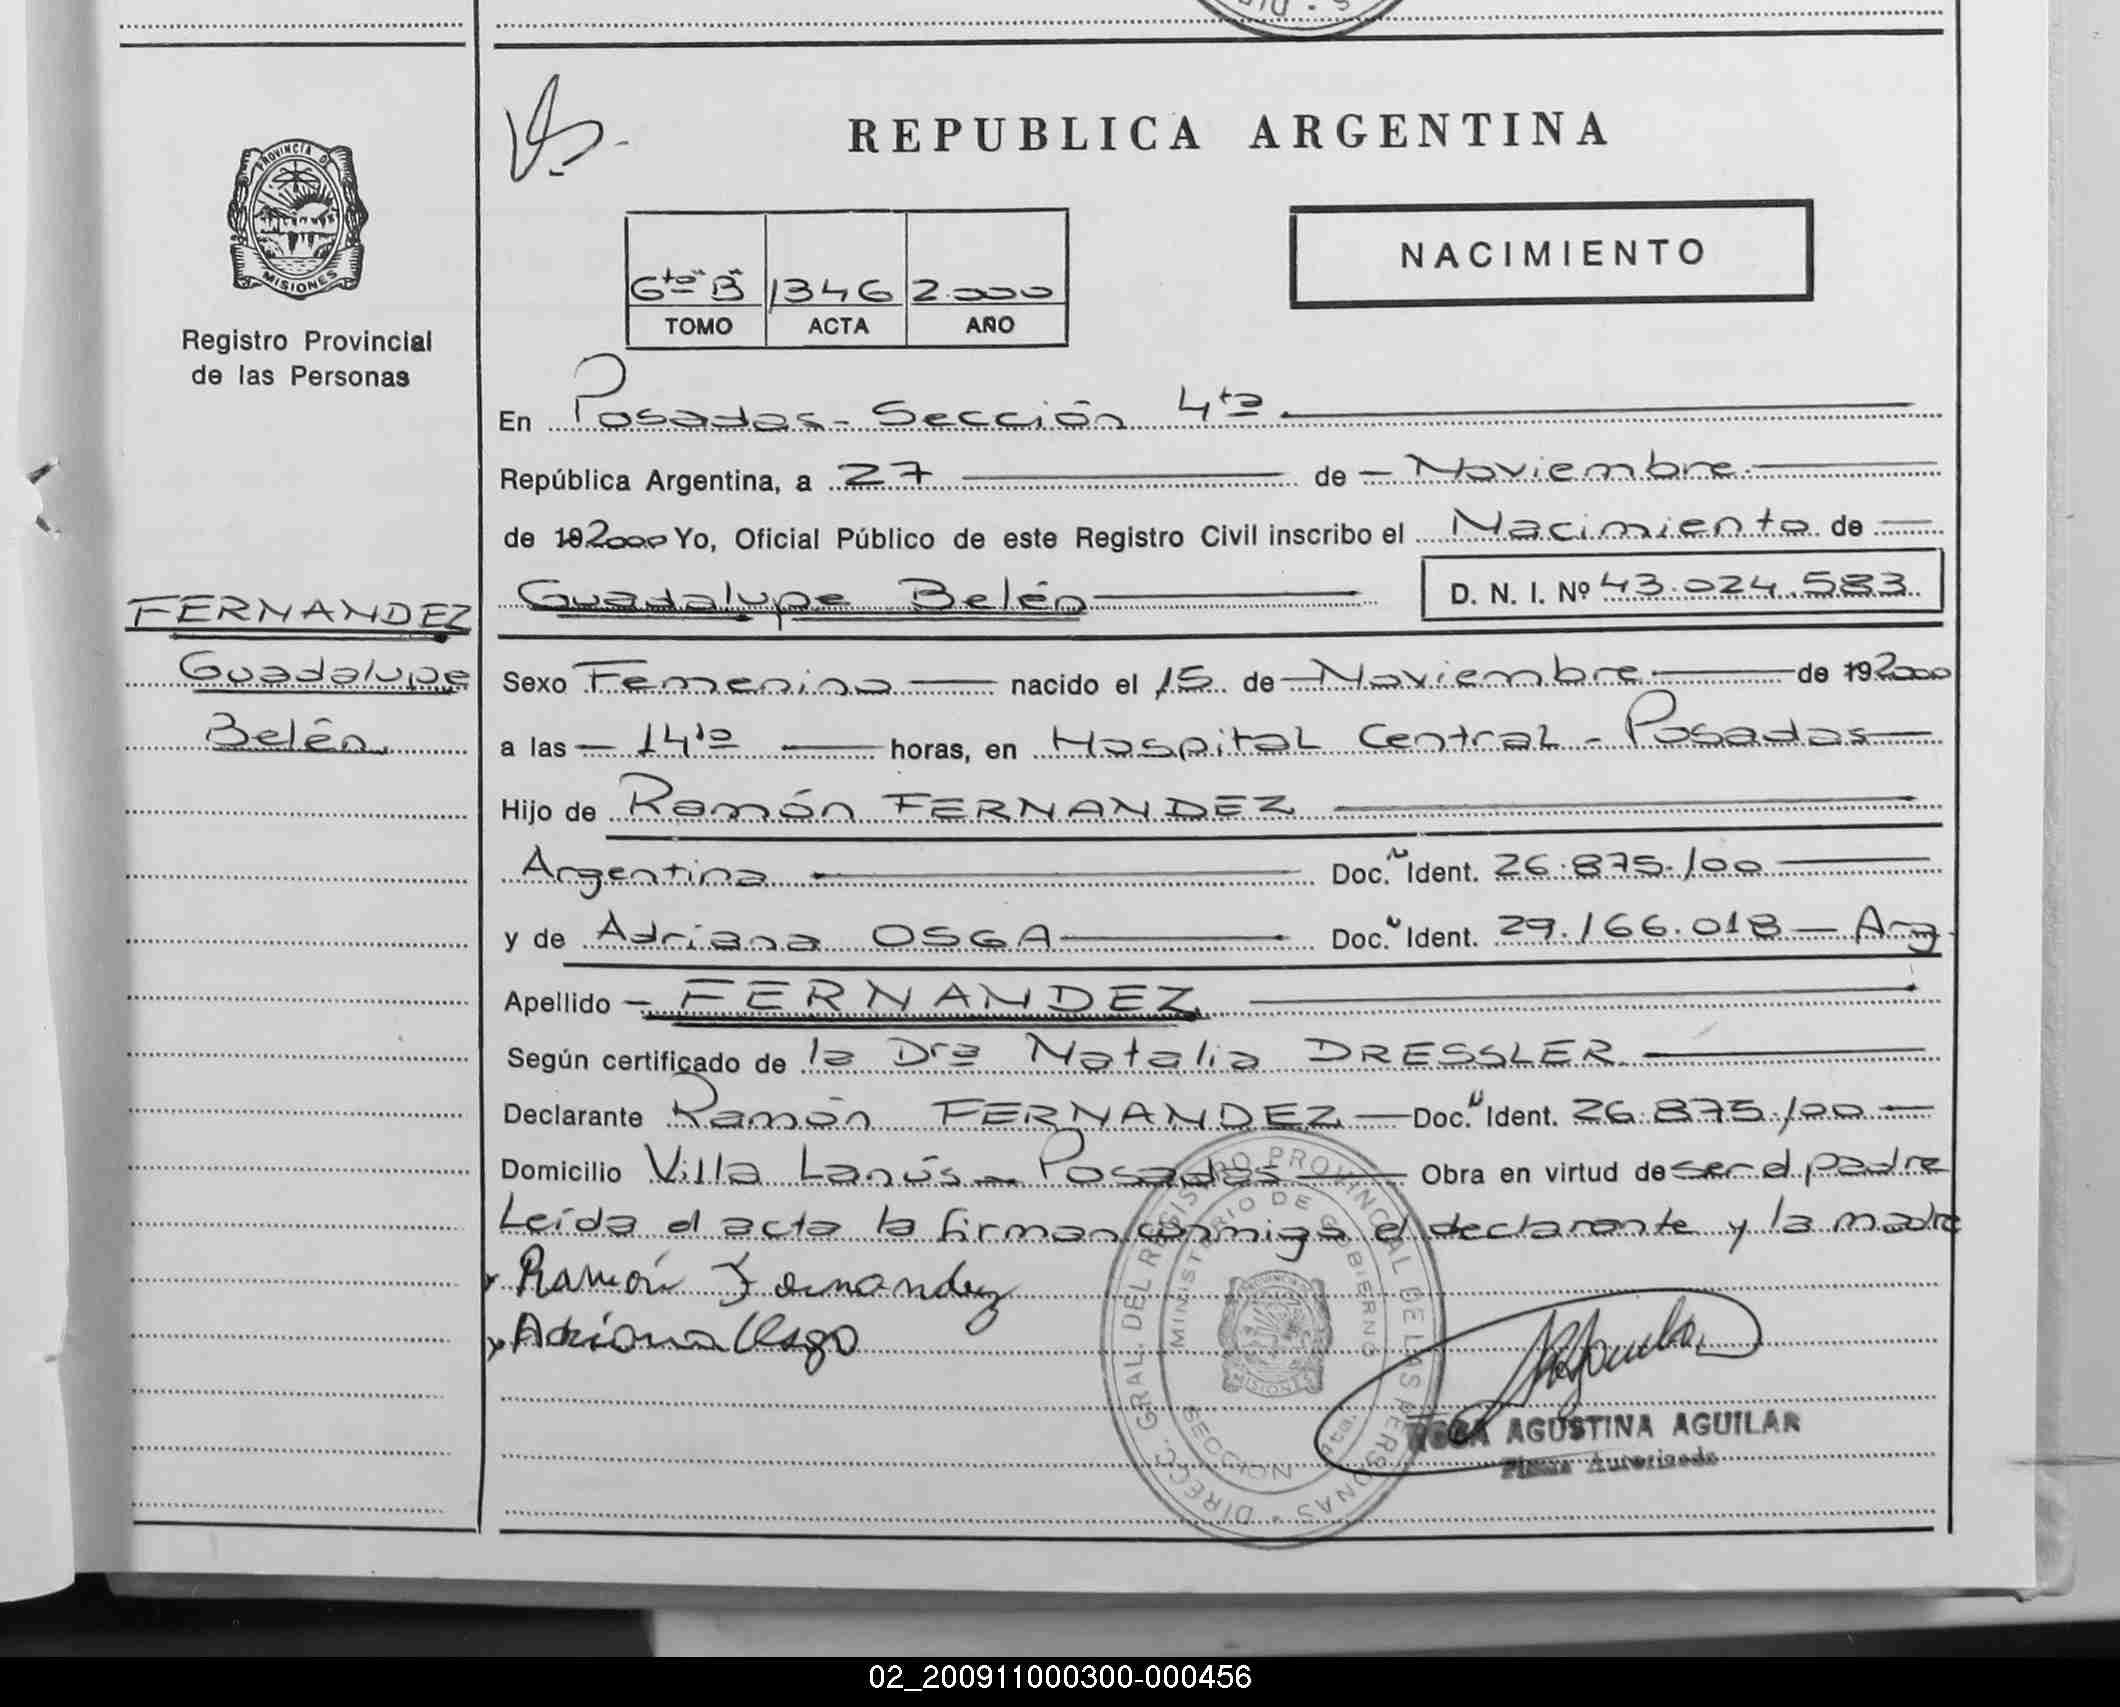 REPUBLICA ARGENTINA
NACIMIENTO
PROVINCIA DE
MISIONES
Registro Provincial
de las Personas
6to "B" 1346 2.000
TOMO ACTA AÑO
En Posadas - Sección 4ta
República Argentina, a 27 de Noviembre
de 192000 Yo, Oficial Público de este Registro Civil inscribo el Nacimiento de
Guadalupe Belén D. N. I. Nº 43.024.583
FERNANDEZ
Guadalupe
Belén
Sexo Femenino nacido el 15 de Noviembre de 192000
a las 14,10 horas, en Hospital Central - Posadas
Hijo de Ramón FERNANDEZ
Argentina Doc. Ident. 26.875.100
y de Adriana OSGA Doc. Ident. 29.166.018 - Arg
Apellido FERNANDEZ
Según certificado de la Dra Natalia DRESSLER
Declarante Ramón FERNANDEZ Doc. Ident. 26.875.100
Domicilio Villa Lanús - Posadas Obra en virtud de ser el padre
Leída el acta la firman conmigo el declarante y la madre
Ramón Fernandez
Adriana Osga
DIRECC. GRAL. DEL REGISTRO PROVINCIAL DE LAS PERSONAS
MINISTERIO DE GOBIERNO
SECCION 4ta.
MISIONES
AGUSTINA AGUILAR
Firma Autorizada
02_200911000300-000456